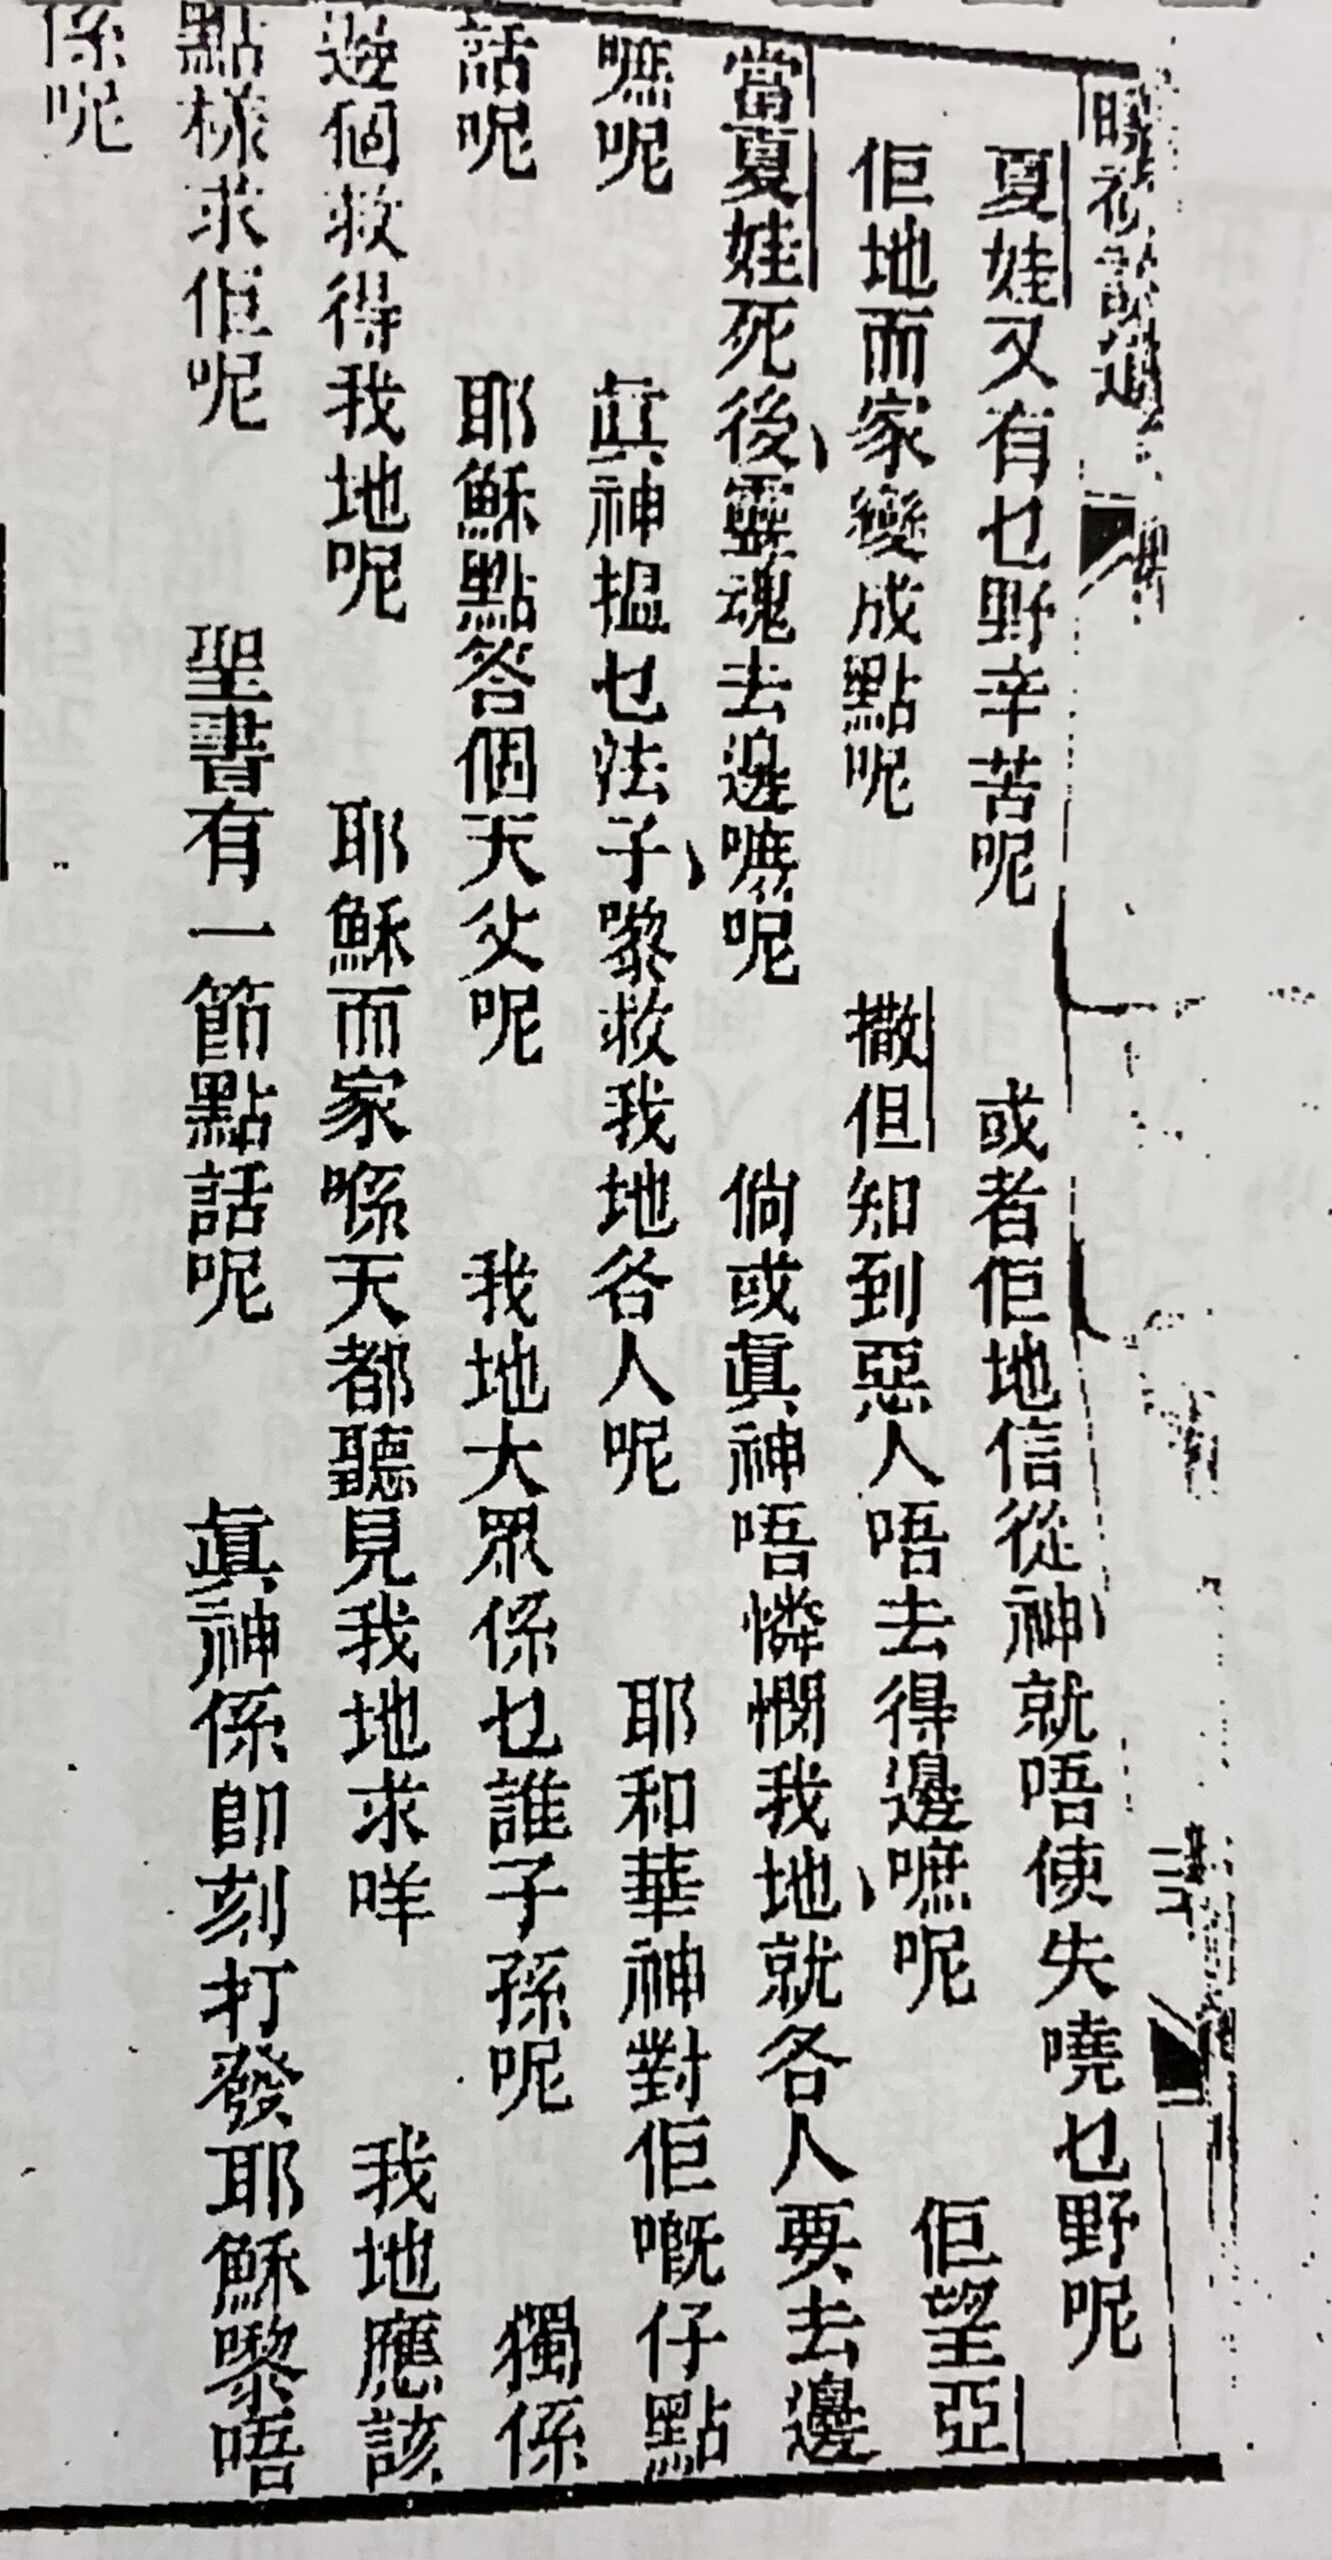 夏娃又有乜野辛苦呢　或者佢地信從神就唔使失嘵乜野呢
佢地而家變成點呢　撒但知到惡人唔去得邊嚤呢　佢望亞
當夏娃死後、靈魂去邊嚤呢　倘或眞神唔憐憫我地、就各人要去邊
嚤呢　眞神揾乜法子、嚟救我地各人呢　耶和華神對佢嘅仔點
話呢　耶穌點答個天父呢　我地大眾係乜誰子孫呢　獨係
邊個救得我地呢　耶穌而家喺天都聽見我地求咩　我地應該
點樣求佢呢　聖書有一節點話呢　眞神係卽刻打發耶穌嚟唔
係呢